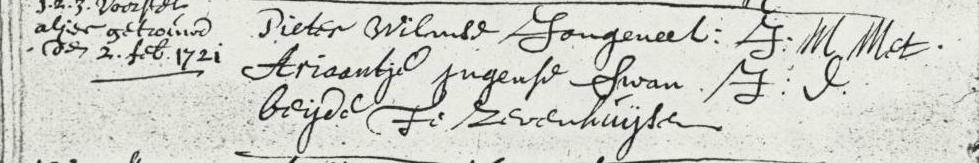 1. 2. 3. Voorstel
alhier getrouwd
den 2. feb. 1721
Pieter Wilmse Jongeneel: J: M Met
Ariaantje Jngense Swan. J: D.
beijde Te Zevenhuijsen